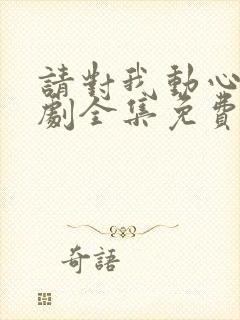 請對我動心
劇全集免費
奇語